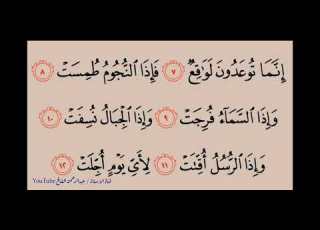 إِنَّمَا تُوعَدُونَ لَوَٰقِعٌ ٧ فَإِذَا ٱلنُّجُومُ طُمِسَتْ ٨
وَإِذَا ٱلسَّمَآءُ فُرِجَتْ ٩ وَإِذَا ٱلْجِبَالُ نُسِفَتْ ١٠
وَإِذَا ٱلرُّسُلُ أُقِّتَتْ ١١ لِأَيِّ يَوْمٍ أُجِّلَتْ ١٢
YouTube